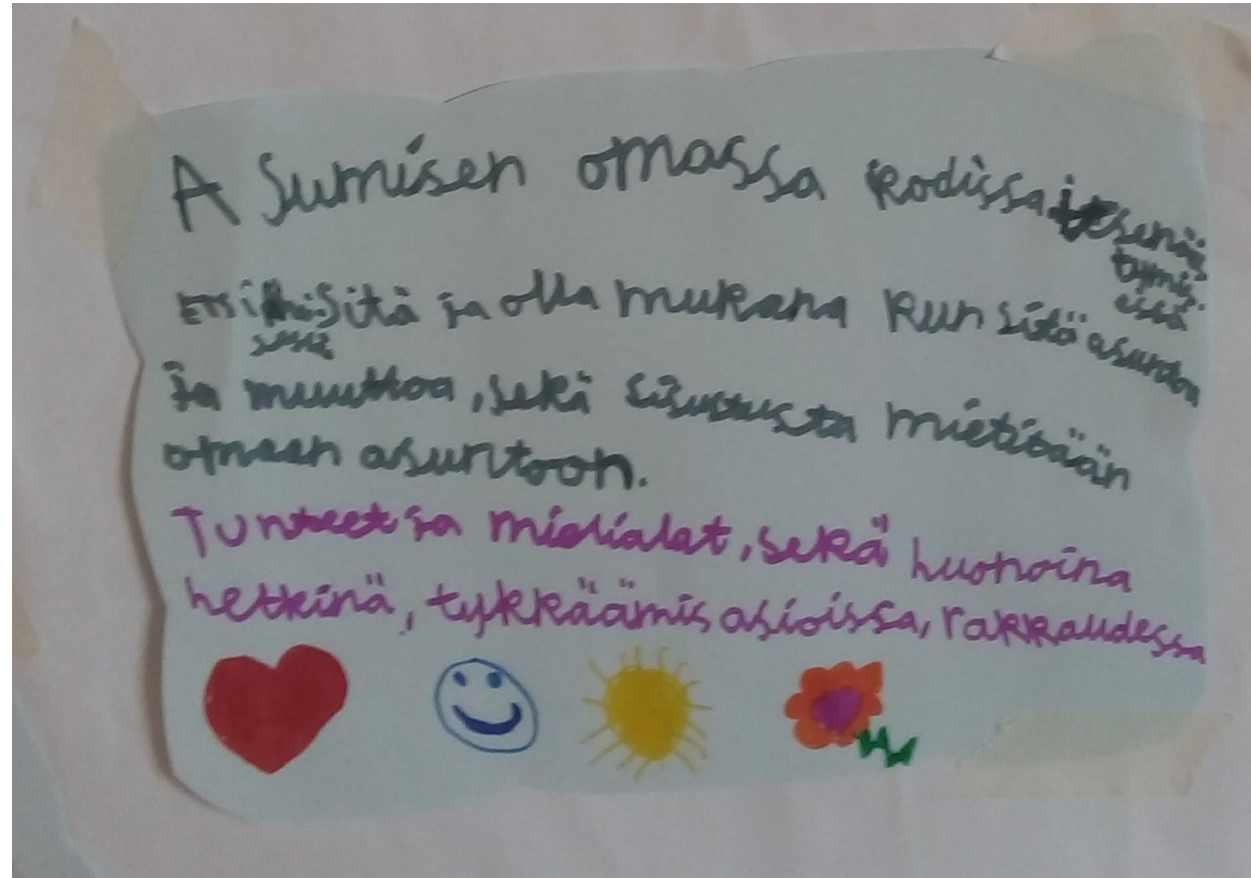 A Sumisen omassa kodissa itsenäis
tymi
sestä
Ensi sitä ja olla mukana kun sitä asundon
sestä
ja muuttoa, sekä sisustusta mietitään
omaan asuntoon.
Tunteet ja mielialat, sekä huonoina
hetkinä, tykkäämis asioissa, rakkaudessa